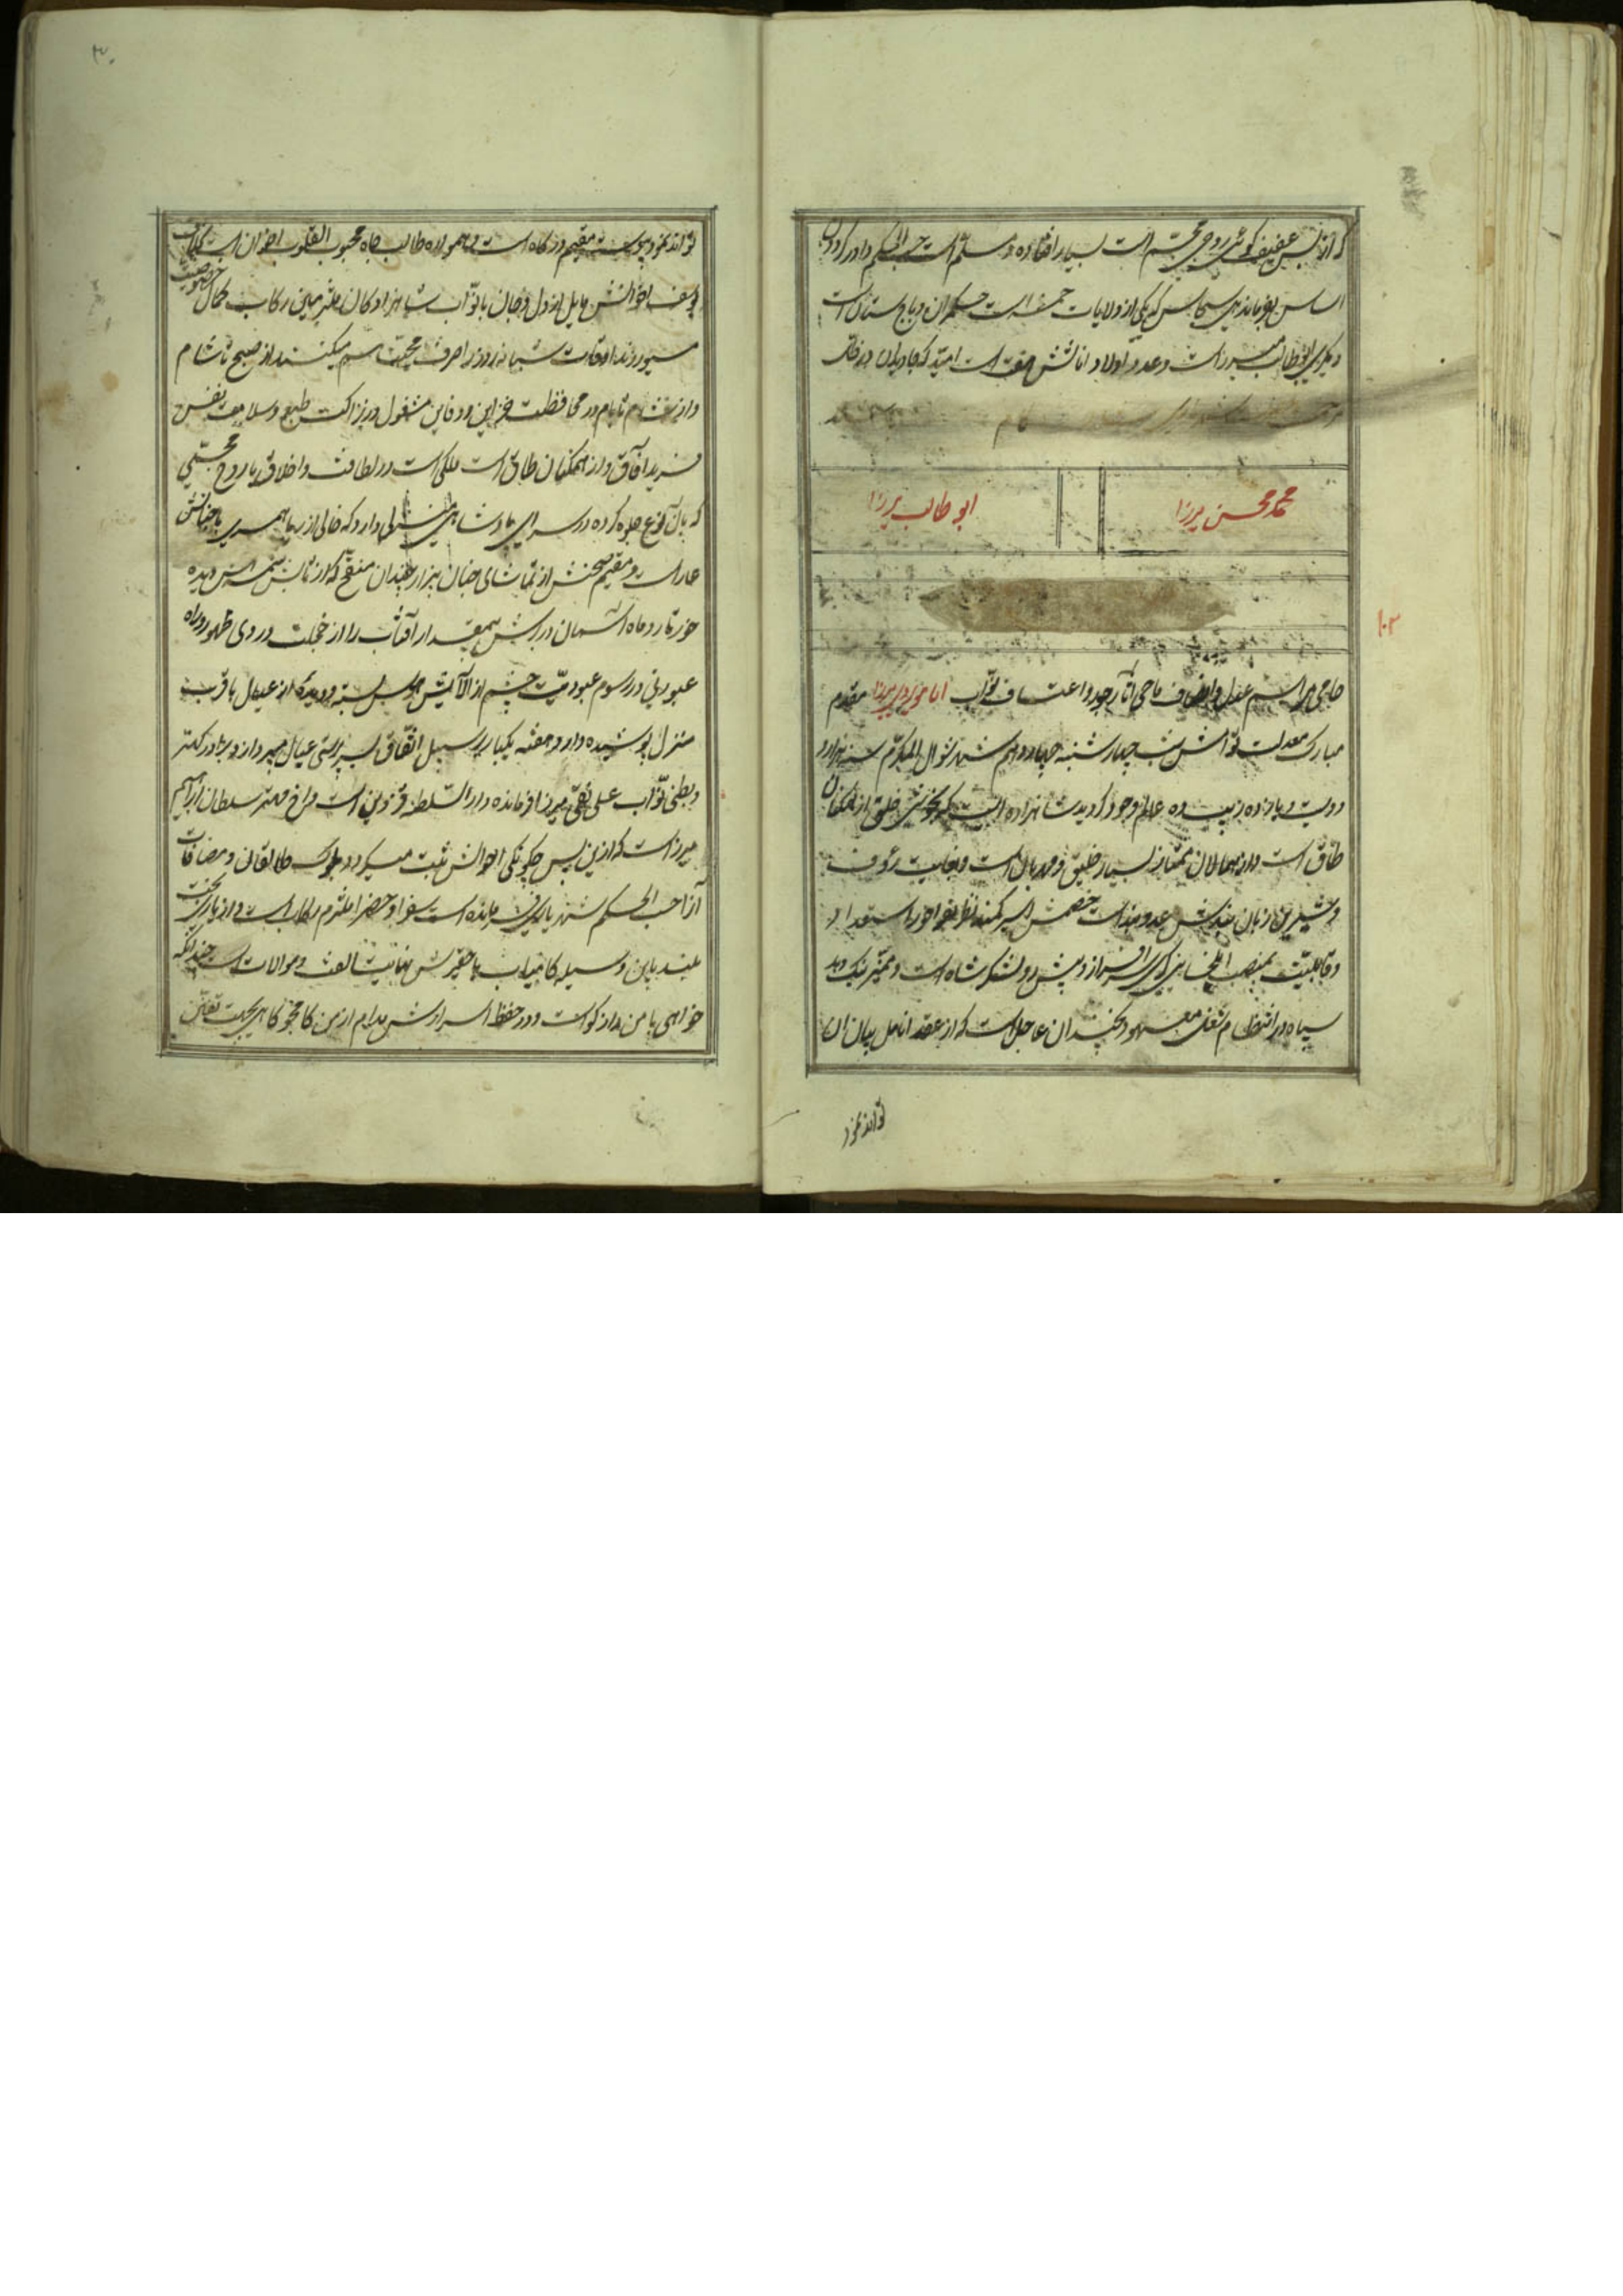 که از بس عفیف گوئی روحی مجسم است بسیار افتاده و مسلم است حسب الحکم دادرکردون
اساس بفرماندهی سجاس که یکی از ولایات خمسه است حکمران و باج ستان است
دیگری ابوطالب میرزاست و عدد اولاد اناثش هفت است امید که جاویدان در
کام
محمد محسن میرزا
ابو طالب میرزا
۱۰۳
حاجی مراسم عدل و انصاف ماحی آثار جور و اعتساف نواب امام ویردی میرزا مقدم
مبارک معدلت توامش شب چهارشنبه چهاردهم شهر شوال المکرم سنه هزار و
دویست و یازده زیبنده عالم وجود گردید شاهزاده ایست که بخوشی خلق از امکان
طاق است و از همالان ممتاز بسیار خلیق و مهربان است و بغایت رؤف
و شیرین زبان بندش عدو بند است خصمش اسیر کمند نظر بفراخور استعداد
و قابلیت بمنصب ایلخانی گری سرافراز و پیش رو لشکر شاه است و ممیز نیک و بد
سپاه در انتظام شغل معهود بچندان عاجل است که از عقد انامل بیان آن
تواند نمود
۳۰
تواند نمود پیوسته مقیم درگاه است و همواره طالب جاه محبوب القلوب اخوان است
یوسف اخوانش مایل از دل و جان با نواب شاهزادگان ملتزمین رکاب کمال خصوصیت
میورزند اوقات شبانه روز را صرف محبت هم میکنند از صبح تا شام
و از شام تا بام در محافظت خزاین و دفاین مشغول در نزاکت طبع و سلامت نفس
فرید آفاق و از همگنان طاق است ملکی است در لطافت و اخلاق یا روح مجسمی
که بآن نوع جلوه کرده در سرای پادشاهی منزلی دارد که خالی از ریا همسری با جنانش
عار است و مقیم صحنش از تماشای جنان بیزار چندان منقح که از تابش شمسه اش دیده
خور تار و ماه آسمان در برش بیمقدار آفتاب را از خجلت در وی ظهور و راه
عبوری در رسوم عبودیت چشم از آلایش هوس بسته و دیده از عیال با قرب
منزل پوشیده دارد هفته یکبار بر سبیل اتفاق بسرپرستی عیال میپردازد برادر کهتر
و بطنی نواب علی نقی میرزا فرمانده دارالسلطنه قزوین است و اخ مهتر سلطان ابراهیم
میرزاست که ازین پس چگونگی احوالش ثبت میگردد بلوک طالقان و مضافات
آنرا حسب الحکم شهریاری فرمانده است سفرا و حضرا ملتزم رکاب است و از یاری بخت
بلند باین وسیله کامیاب با حقیرش نهایت الفت و موالات است چندانکه
خواهی با من رازگوست و در حفظ اسرارش مدام از من کامجو گاهی بجهت تفنن